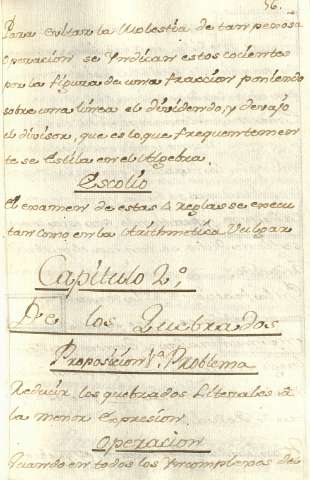 56.
Para evitar la Molestia de tan penosa
Operacion se Yndican estos cocientes
por la figura de una fraccion poniendo
sobre una linea el dividendo, y devajo
el divisor, que es lo que frequentemen
te se Estila en el Algebra.
Escolio
El examen de estas 4 reglas se execu
tan como en la Arithmetica Vulgar
Capitulo 2º,
De los Quebrados
Proposicion 1ª Problema
Reducir los quebrados Literales à
la menor Expresion.
Operacion
Quando en todos los Yncomplexos del